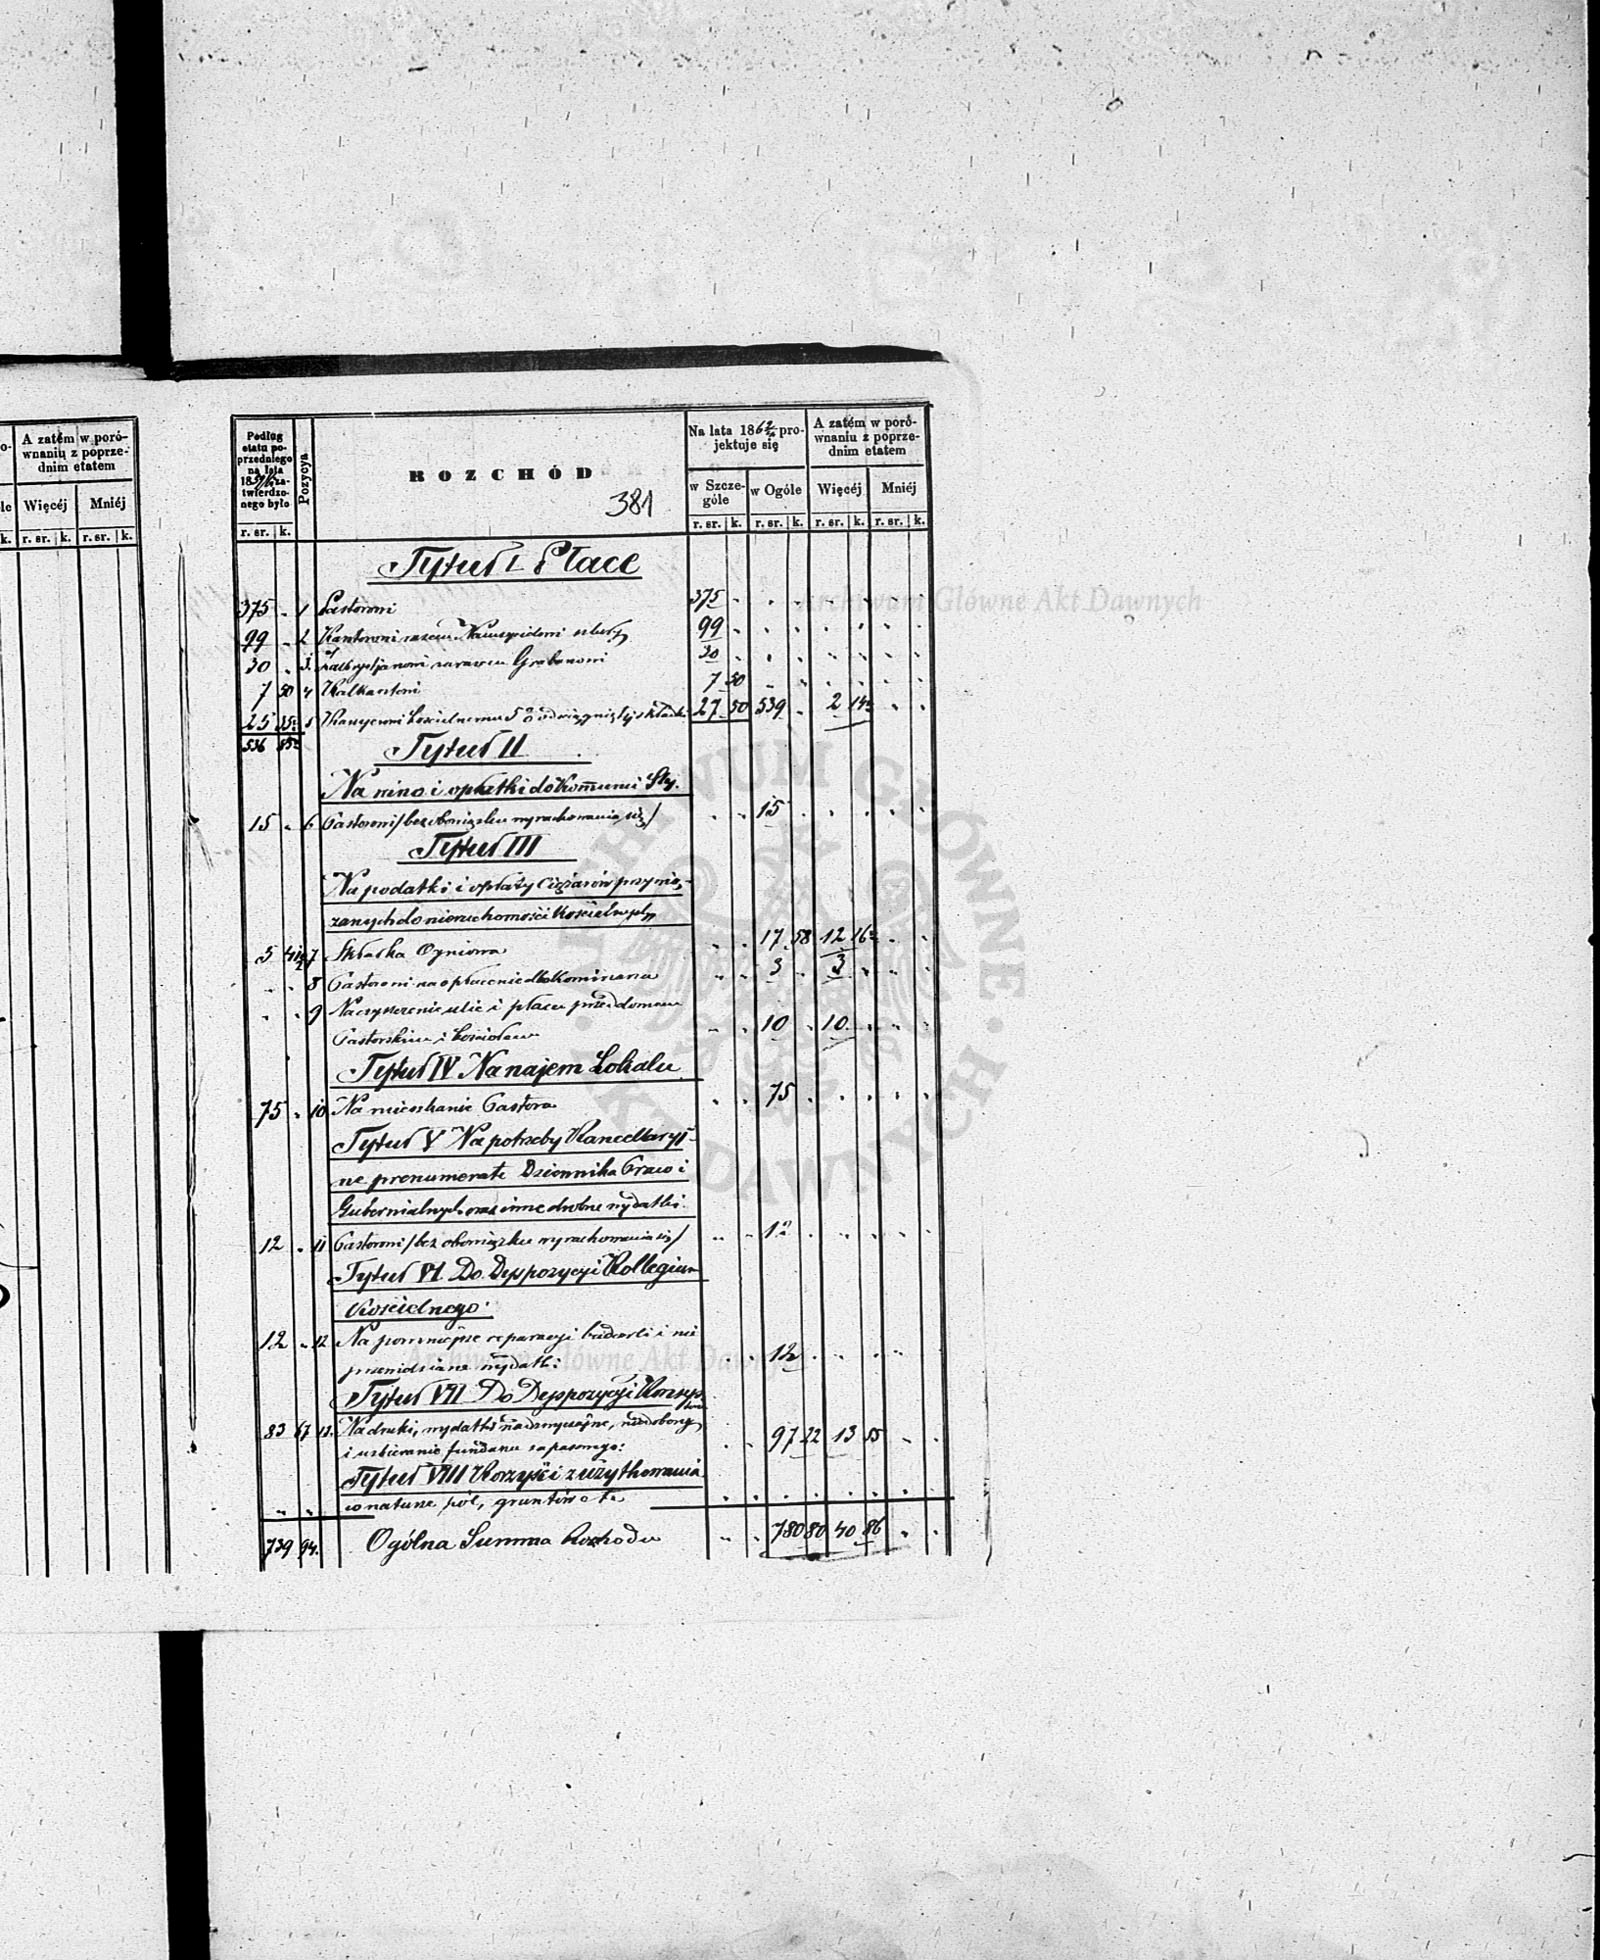 A zatém w poró-
wnaniu z poprze-
dnim etatem
Więcéj Mniéj
k. r. sr. k. r. sr. k.
Podług
etatu po-
przedniego
na lata
za-
twierdzo-
nego było
Pozycya
ROZCHÓD
381
Na lata 186 pro-
jektuje się
A zatém w poró-
wnaniu z poprze-
dnim etatem
w Szcze-
góle
w Ogóle Więcéj Mniéj
r. sr. k. r. sr. k. r. sr. k. r. sr. k.
Tytuł I Płace
375 1 Pastorowi 375
99 2 Kantorowi razem 99
30 3. zarazem Grabarzowi 30
7 50 4 Kalkantowi 7 50
25 35 5 Kassyerowi Kościelnemu 5 od 27 50 539 2 14
536 85 Tytuł II
Na wino i opłatki do Kommunii Sty.
15 6 Pastorowi / bez obowiązku wyrachowania się / 15
Tytuł III
Na podatki i opłaty Ciężarów przywią-
zanych do nieruchomości Kościelnych
5 41 7 Składka Ogniowa 17 58 12 16
8 Pastorowi na opłacenie Kominiarza 3 3
9 Na czyszczenie ulic i placu przed domem
Pastorskim i Kościołem 10 10
Tytuł IV Na najem Lokalu
75 10 Na mieszkanie Pastora 75
Tytuł V Na potrzeby Kancellaryj-
ne prenumeratę Dziennika Praw i
Gubernialnych oraz inne drobne wydatki
12 11 Pastorowi / bez obowiązku wyrachowania się / 12
Tytuł VI Do Dyspozycyi Kollegium
Kościelnego
12 12 Na pomniejsze reparacye budowli i nie
przewidziane wydatki 12
Tytuł VII Do Dyspozycyi
83 67 13. Na druki, wydatki nadzwyczajne, niedobory
i uzbieranie funduszu zapasowego: 97 22 13 55
Tytuł VIII Korzyści z użytkowania
w naturze pól, gruntów
739 94. Ogólna Summa Rozchodu 780 80 40 86
Archiwum Główne Akt Dawnych
Archiwum Główne Akt Dawnych
ARCHIWUM GŁÓWNE AKT DAWNYCH